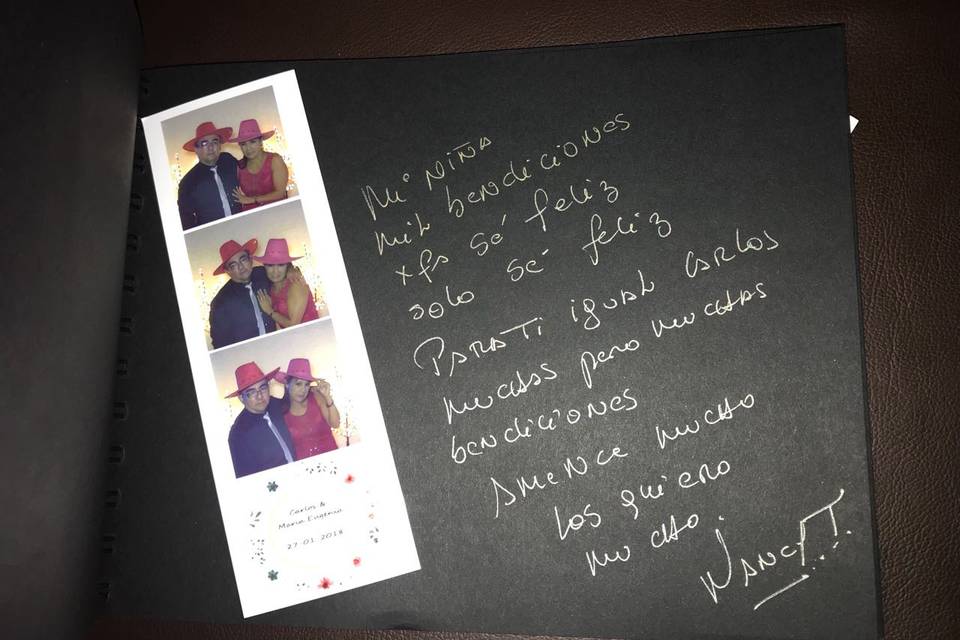 Carlos &
Maria Eugenia
27-01-2018
Mi NiÑa
mil bendiciones
xfa sé feliz
solo sé feliz
PARA Ti igual CARLOS
muchas pero muchas
bendiciones
AmeNce mucho
los quiero
mucho.
NANCY T.